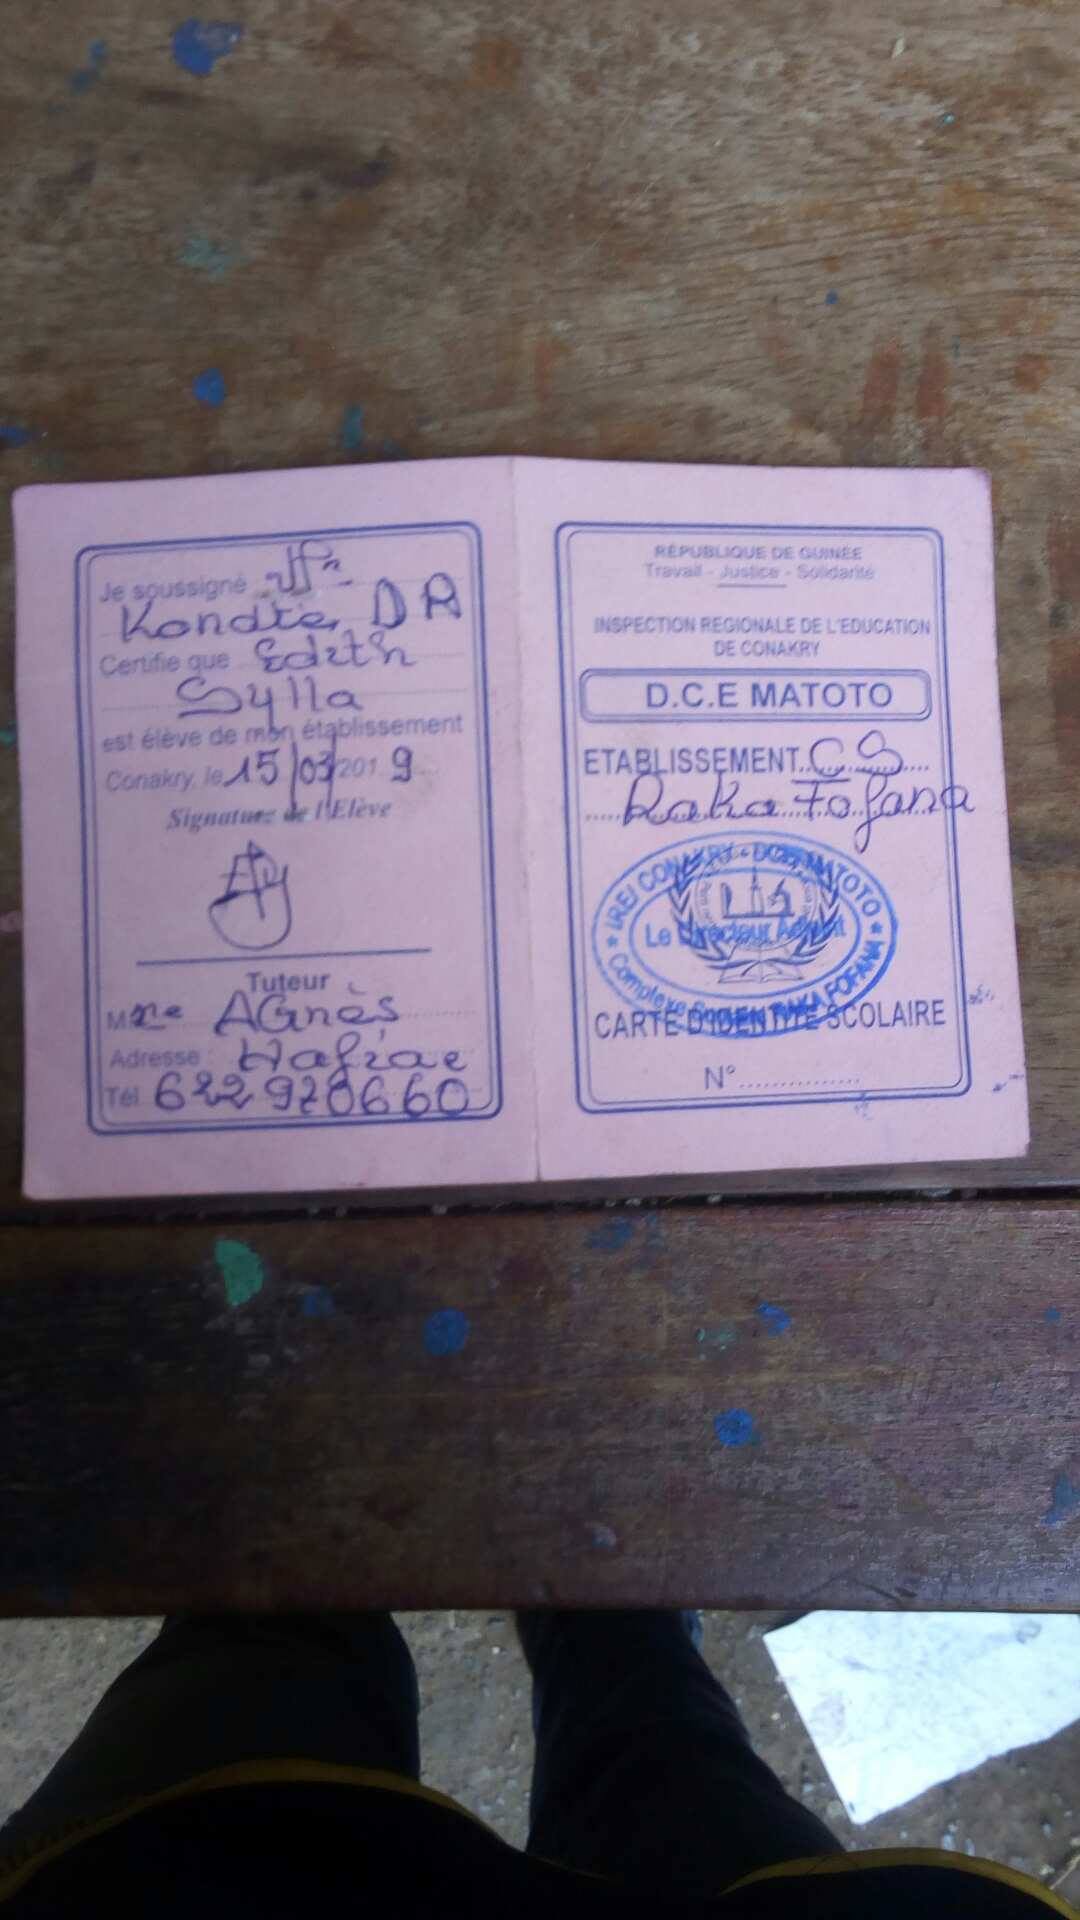 Je soussigné
Kondte, DA
Certifie que Edith
Sylla
est élève de mon établissement
Conakry, le 15/03/2019
Signature de l'Elève
Tuteur
Mme AGnès
Adresse : Hafiae
Tél 622 970660
RÉPUBLIQUE DE GUINÉE
Travail - Justice - Solidarité
INSPECTION REGIONALE DE L'EDUCATION
DE CONAKRY
D.C.E MATOTO
ETABLISSEMENT CS
Raka Fofana
* IRE/ CONAKRY - DCE MATOTO *
Le Directeur
Complexe RAKA FOFANA
CARTE D'IDENTITÉ SCOLAIRE
N°